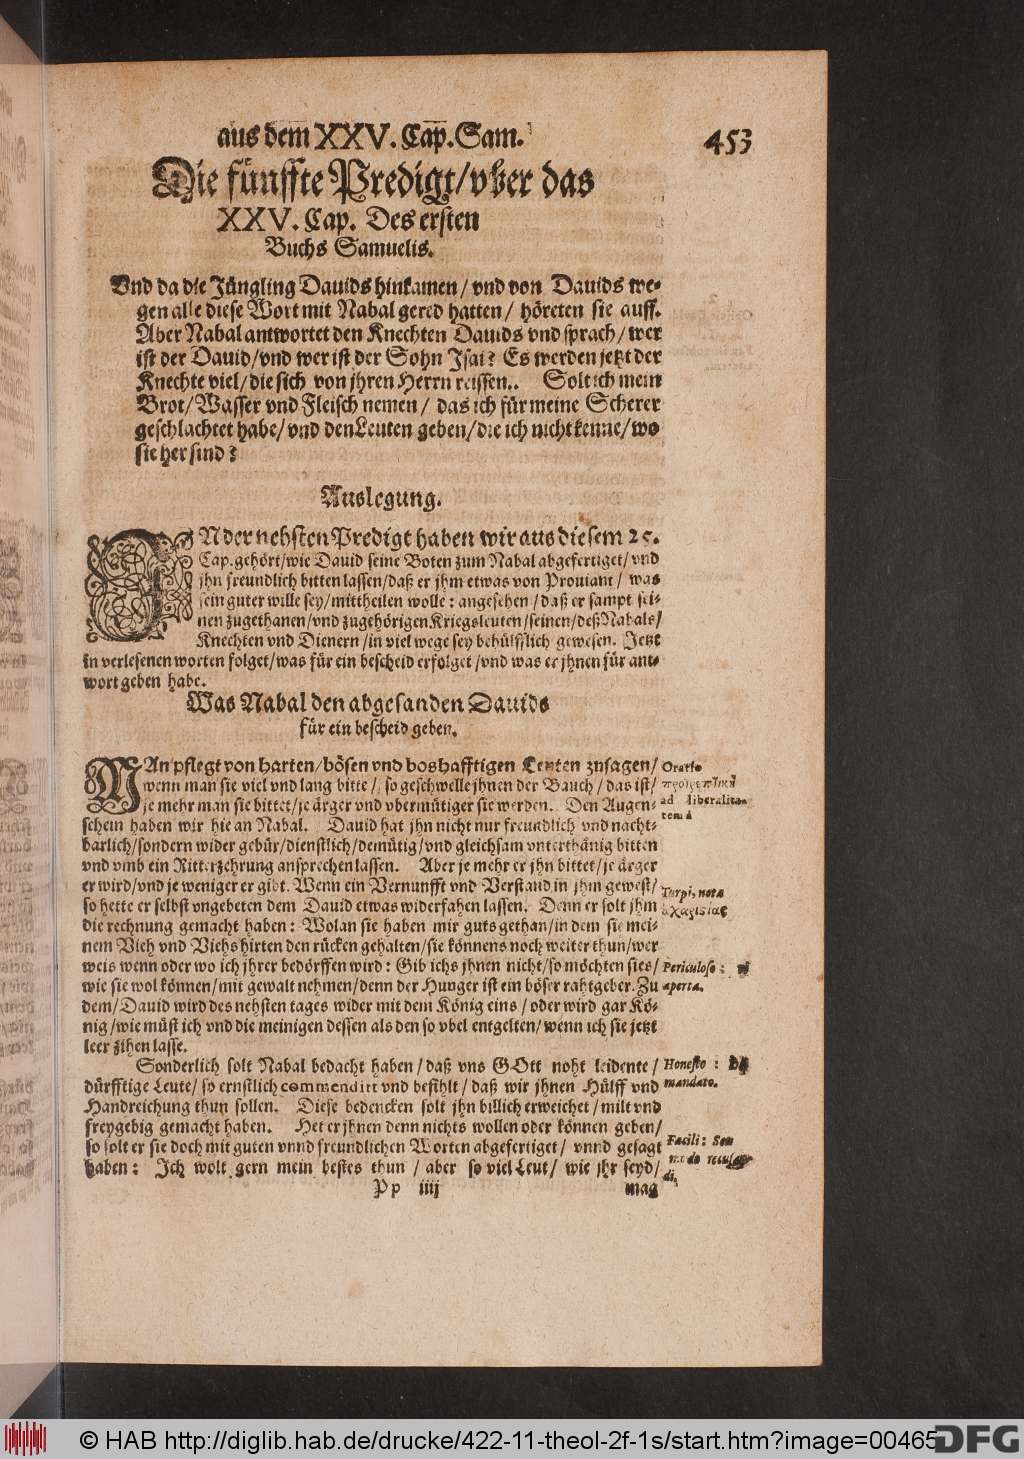 aus dem XXV. Cap. Sam.
453
Die fünffte Predigt/vber das
XXV. Cap. Des ersten
Buchs Samuelis.
Vnd da die Jüngling Dauids hinkamen/vnd von Dauids we-
gen alle diese Wort mit Nabal gered hatten/ höreten sie auff.
Aber Nabal antwortet den Knechten Dauids vnd sprach/wer
ist der Dauid/vnd wer ist der Sohn Jsai? Es werden jetzt der
Knechte viel/die sich von jhren Herrn reissen.. Solt ich mein
Brot/Wasser vnd Fleisch nemen/ das ich für meine Scherer
geschlachtet habe/vnd den Leuten geben/die ich nicht kenne/wo
sie her sind?
Auslegung.
JN der nehsten Predigt haben wir aus diesem 25.
Cap. gehört/wie Dauid seine Boten zum Nabal abgefertiget/vnd
jhn freundlich bitten lassen/daß er jhm etwas von Prouiant/ was
sein guter wille sey/mittheilen wolle: angesehen/daß er sampt sei-
nen zugethanen/vnd zugehörigen Kriegsleuten/seinen/deß Nabals/
Knechten vnd Dienern/in viel wege sey behülfflich gewesen. Jetzt
in verlesenen worten folget/was für ein bescheid erfolget/vnd was er jhnen für ant-
wort geben habe.
Was Nabal den abgesanden Dauids
für ein bescheid geben.
MAn pflegt von harten/bösen vnd boshafftigen Leuten zusagen/
wenn man sie viel vnd lang bitte/ so geschwelle jhnen der Bauch/das ist/
je mehr man sie bittet/je ärger vnd vbermütiger sie werden. Den Augen-
schein haben wir hie an Nabal. Dauid hat jhn nicht nur freundlich vnd nacht-
barlich/sondern wider gebür/dienstlich/demütig/vnd gleichsam vnterthänig bitten
vnd vmb ein Ritterzehrung ansprechen lassen. Aber je mehr er jhn bittet/je ärger
er wird/vnd je weniger er gibt. Wenn ein Vernunfft vnd Verstand in jhm gewest/
so hette er selbst vngebeten dem Dauid etwas widerfahen lassen. Denn er solt jhm
die rechnung gemacht haben: Wolan sie haben mir guts gethan/in dem sie mei-
nem Vieh vnd Viehshirten den rücken gehalten/sie könnens noch weiter thun/wer
weis wenn oder wo ich jhrer bedörffen wird: Gib ichs jhnen nicht/so möchten sies/
wie sie wol können/mit gewalt nehmen/denn der Hunger ist ein böser rahtgeber. Zu
dem/Dauid wird des nehsten tages wider mit dem König eins/oder wird gar Kö-
nig/wie müst ich vnd die meinigen dessen als den so vbel entgelten/wenn ich sie jetzt
leer zihen lasse.
Sonderlich solt Nabal bedacht haben/daß vns GOtt noht leidente/
dürfftige Leute/so ernstlich commendirt vnd befihlt/daß wir jhnen Hülff vnd
Handreichung thun sollen. Diese bedencken solt jhn billich erweichet/milt vnd
freygebig gemacht haben. Het er jhnen denn nichts wollen oder können geben/
so solt er sie doch mit guten vnnd freundlichen Worten abgefertiget/vnnd gesagt
haben: Jch wolt gern mein bestes thun/aber so viel Leut/ wie jhr seyd/
Pp iiij
mag
Oratio
ad liberalita-
tem à
Turpi, nota
ἀχαριστίας
Periculoso: vi
aperta.
Honesto: DEI
mandato.
Facili: Sen
modo
di.
© HAB http://diglib.hab.de/drucke/422-11-theol-2f-1s/start.htm?image=00465
DFG